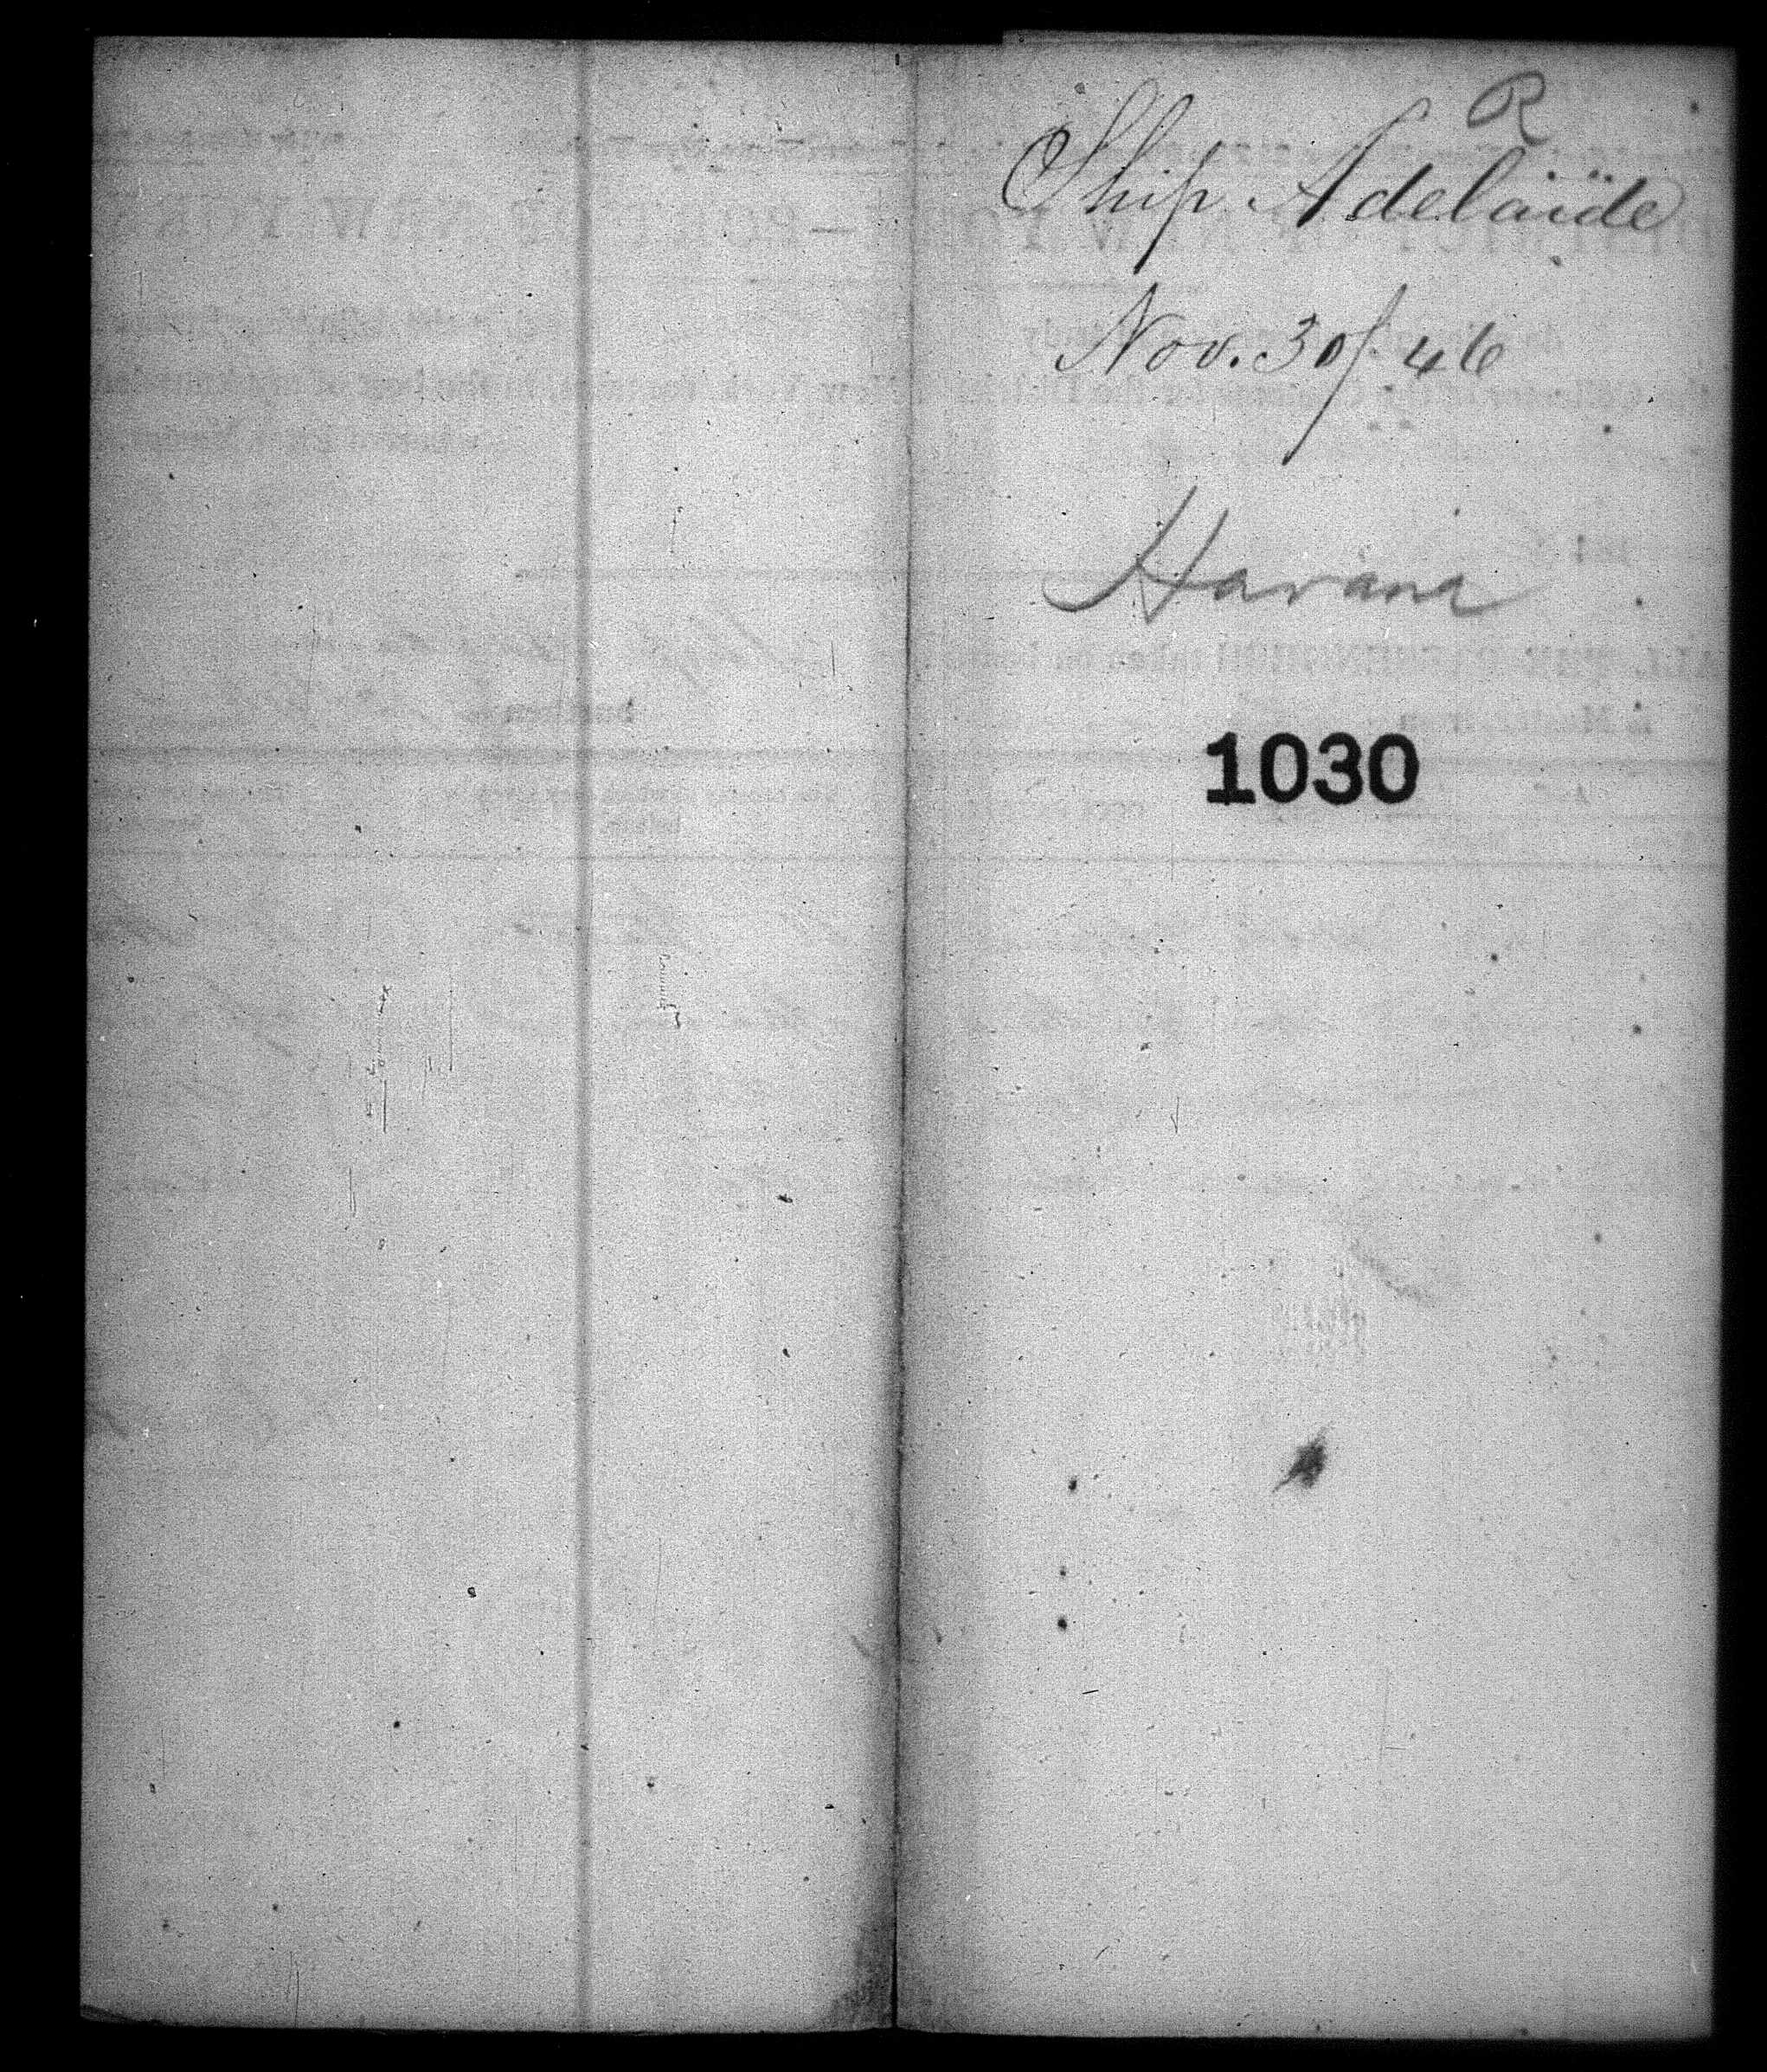 R
Ship Adelaïde
Nov. 30/46
Havana
1030